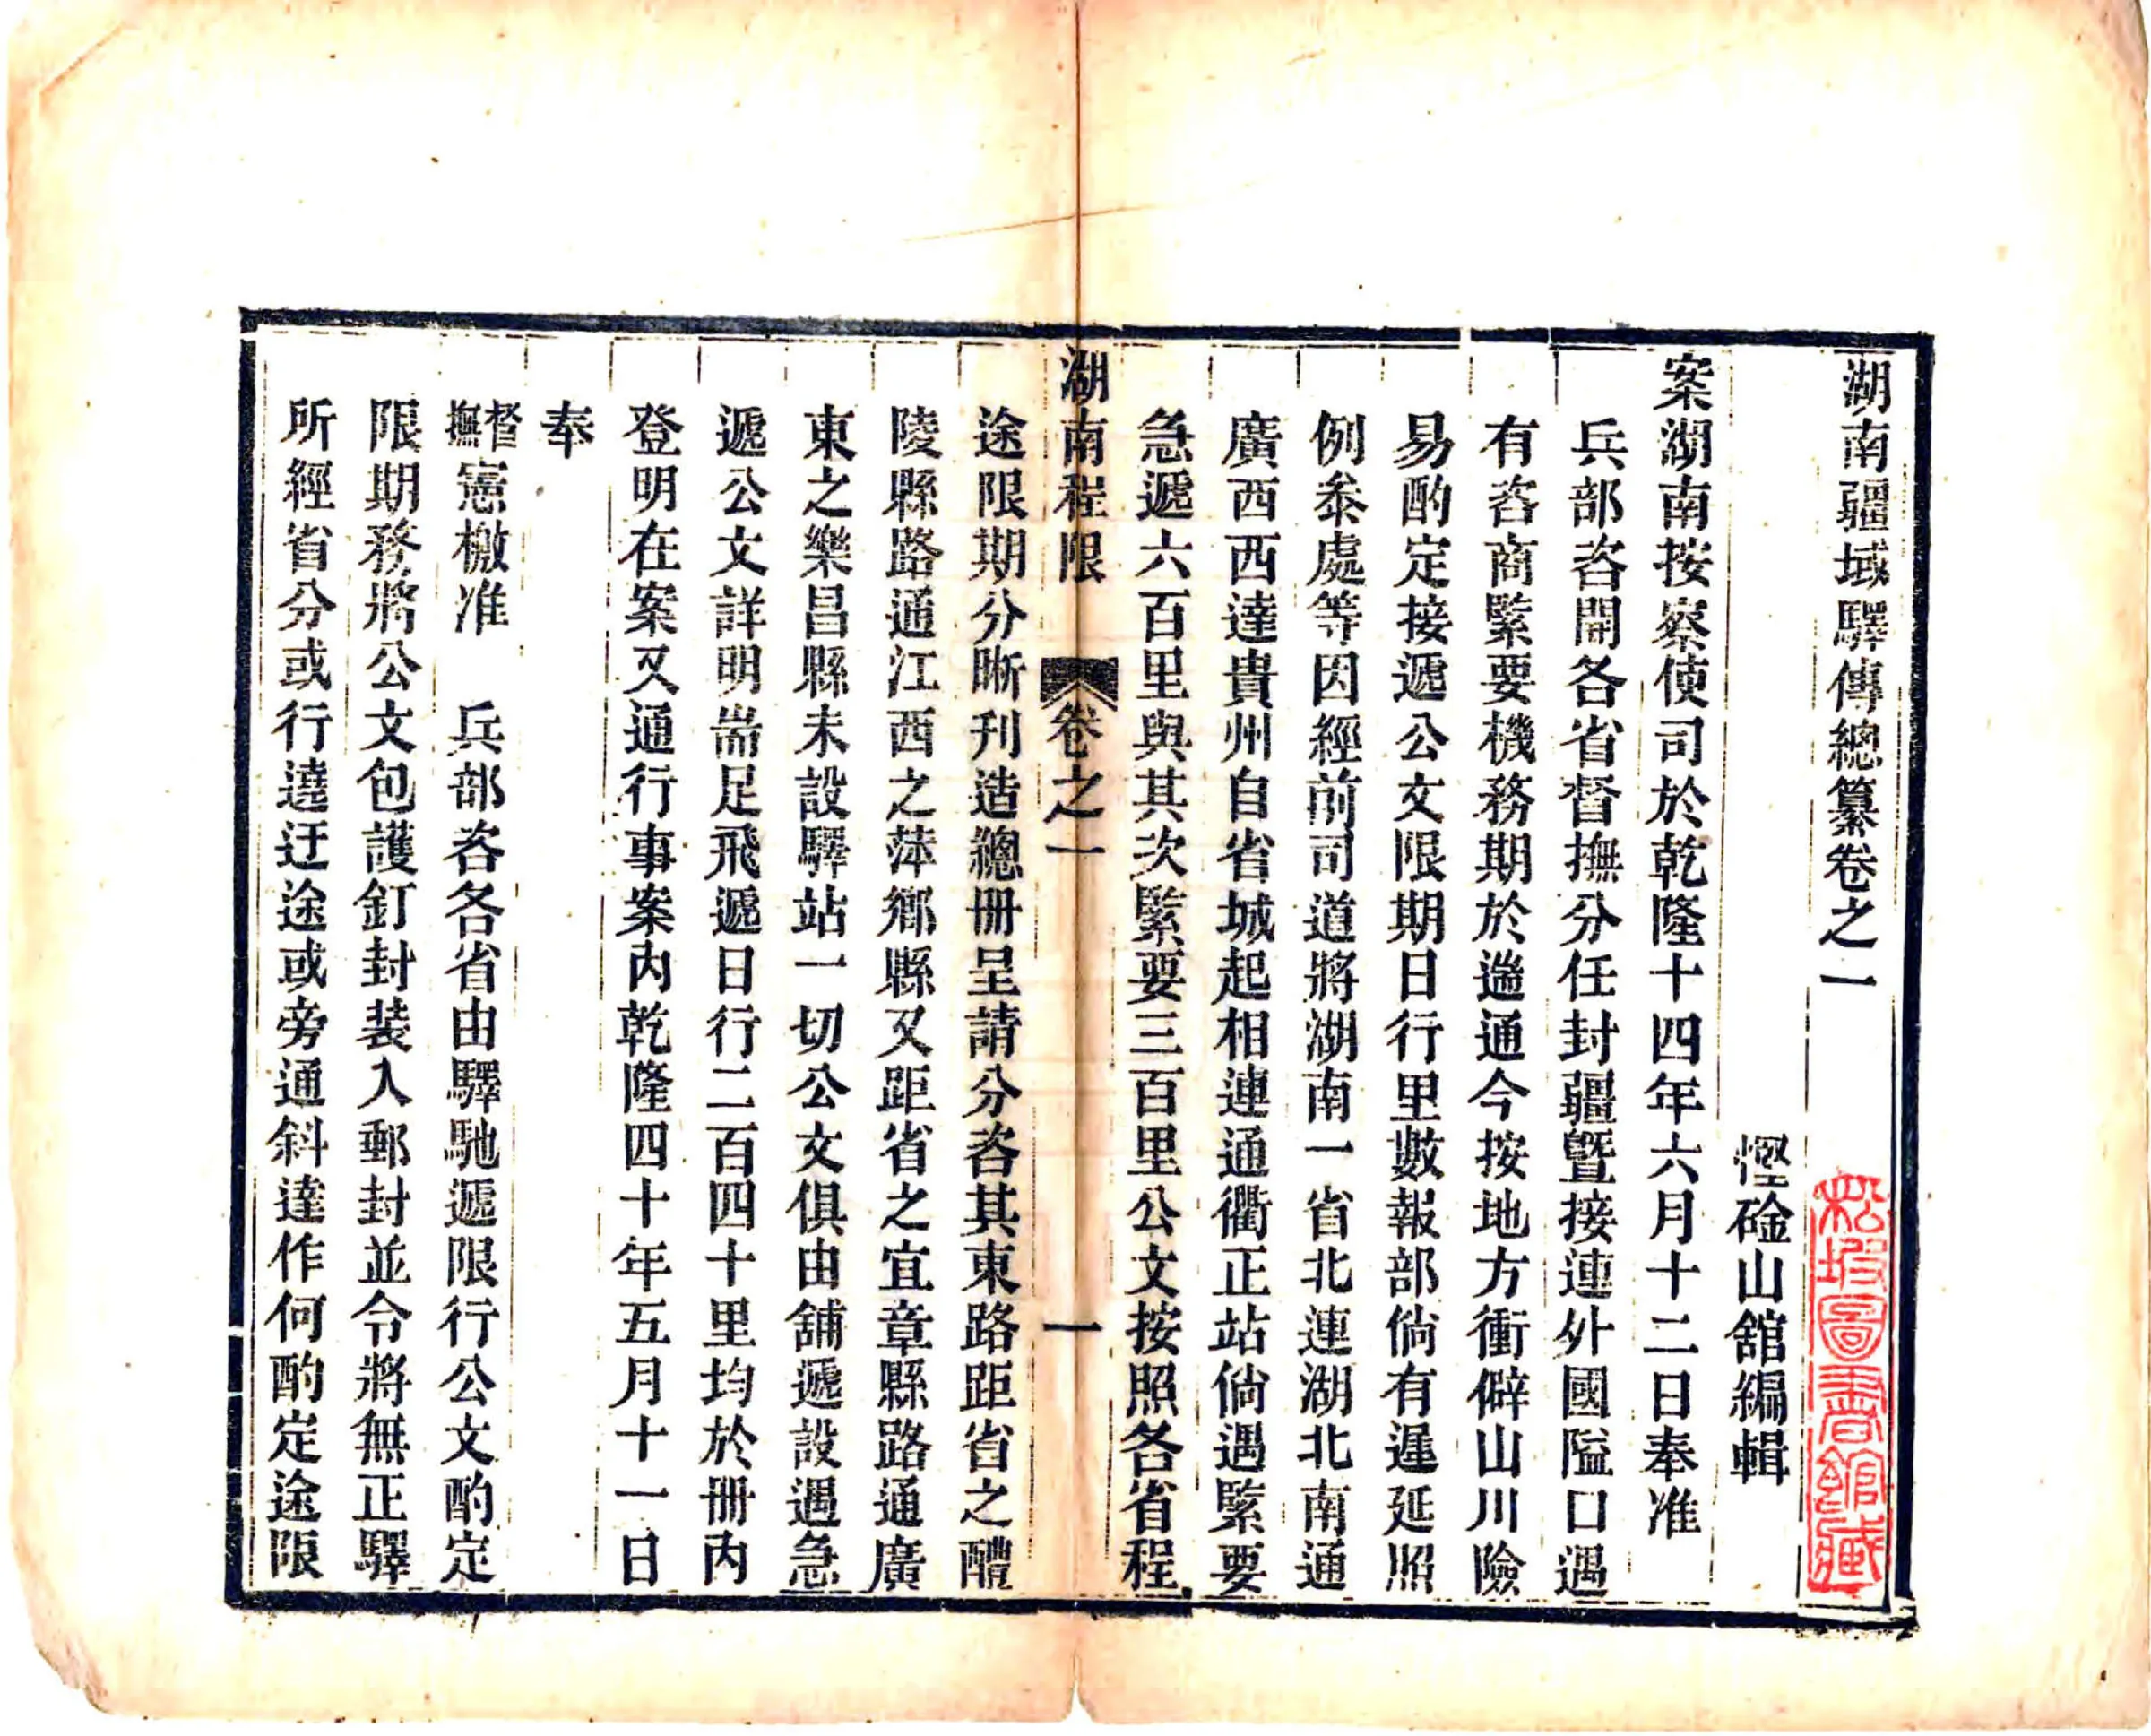 湖南疆域驛傳總纂卷之一
松坡圖書館藏
慳硷山舘編輯
案湖南按察使司於乾隆十四年六月十二日奉准
兵部咨開各省督撫分任封疆曁接連外國隘口遇
有咨商緊要機務期於遄通今按地方衝僻山川險
易酌定接遞公文限期日行里數報部倘有遲延照
例叅處等因經前司道將湖南一省北連湖北南通
廣西西達貴州自省城起相連通衢正站倘遇緊要
急遞六百里與其次緊要三百里公文按照各省程
湖南程限 卷之一 一
途限期分晰刋造總冊呈請分咨其東路距省之醴
陵縣路通江西之萍鄉縣又距省之宜章縣路通廣
東之樂昌縣未設驛站一切公文俱由舖遞設遇急
遞公文詳明耑足飛遞日行二百四十里均於冊内
登明在案又通行事案内乾隆四十年五月十一日
奉
督撫憲檄准 兵部咨各省由驛馳遞限行公文酌定
限期務將公文包護釘封装入郵封並令將無正驛
所經省分或行遶迂途或旁通斜達作何酌定途限